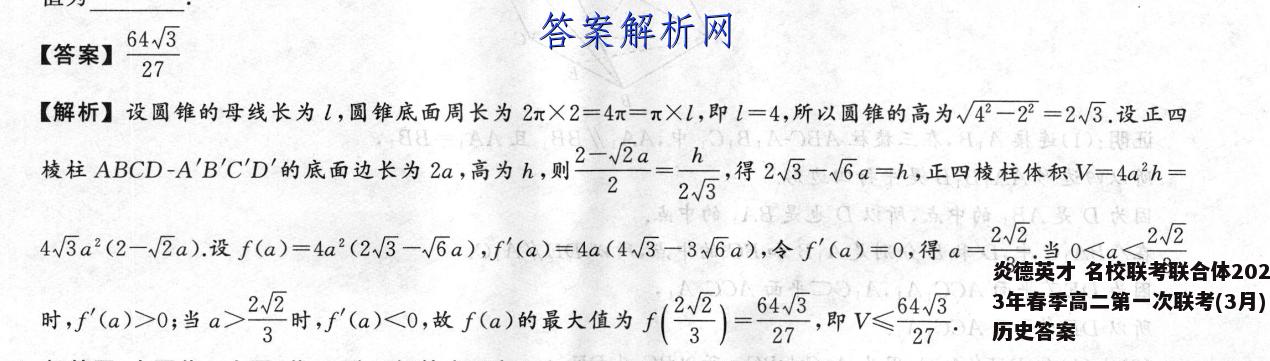 值为________.
答案解析网
【答案】64√3/27
【解析】设圆锥的母线长为 l,圆锥底面周长为 2π×2=4π=π×l,即 l=4,所以圆锥的高为√(4²-2²)=2√3.设正四
棱柱 ABCD-A′B′C′D′的底面边长为 2a,高为 h,则(2-√2a)/2=h/(2√3),得 2√3-√6a=h,正四棱柱体积 V=4a²h=
4√3a²(2-√2a).设 f(a)=4a²(2√3-√6a),f′(a)=4a(4√3-3√6a),令 f′(a)=0,得 a=2√2/3.当 0<a<2√2/3
时,f′(a)>0;当 a>2√2/3时,f′(a)<0,故 f(a)的最大值为 f(2√2/3)=64√3/27,即 V≤64√3/27
炎德英才 名校联考联合体202
3年春季高二第一次联考(3月)
历史答案